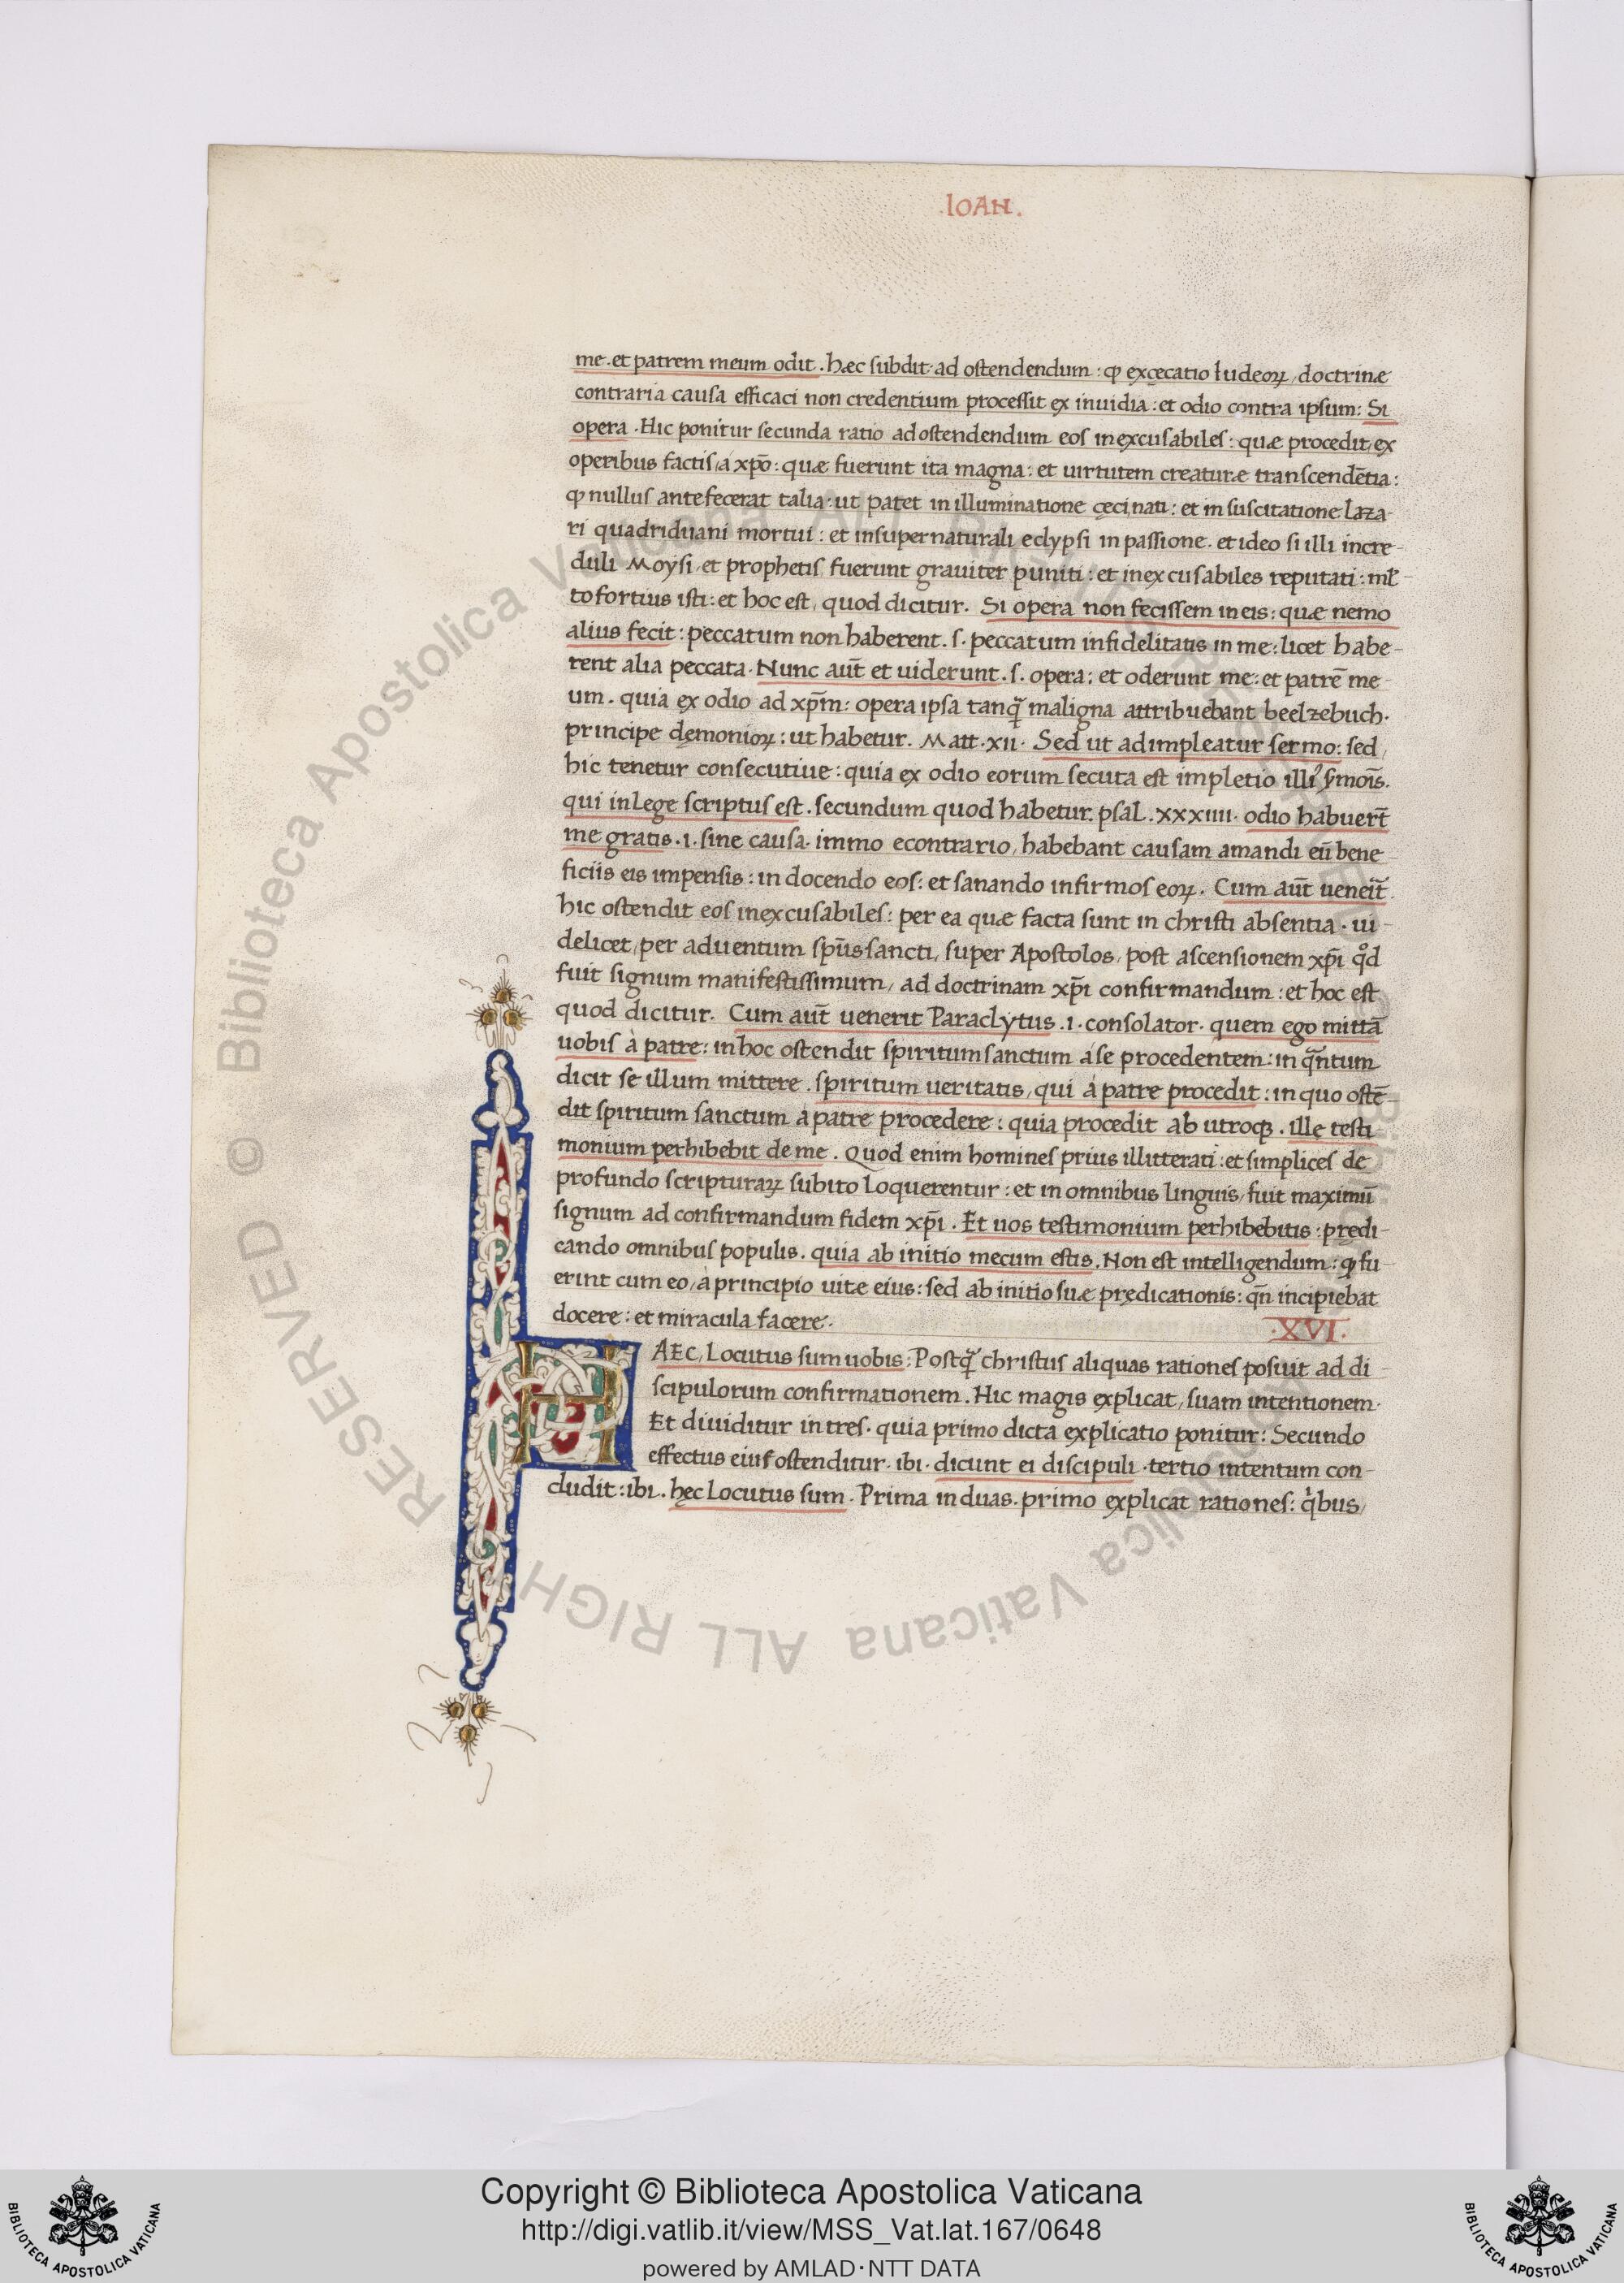 .IOAN.
me. et patrem meum odit. hæc subdit ad ostendendum: ꝙ excecatio Iudeoꝝ, doctrinæ
contraria causa efficaci non credentium processit ex inuidia: et odio contra ipsum: Si
opera. Hic ponitur secunda ratio ad ostendendum eos inexcusabiles: quæ procedit, ex
operibus factis, a xp̄o: quæ fuerunt ita magna: et uirtutem creaturæ transcendētia:
ꝙ nullus ante fecerat talia: ut patet in illuminatione cęci nati: et in suscitatione Laza-
ri quadriduani mortui: et in supernaturali eclypsi in passione. et ideo si illi incre-
duli Moysi, et prophetis fuerunt grauiter puniti: et inexcusabiles reputati: ml̄-
to fortius isti: et hoc est, quod dicitur. Si opera non fecissem in eis: quæ nemo
alius fecit: peccatum non haberent. s. peccatum infidelitatis in me: licet habe-
rent alia peccata. Nunc aūt et uiderunt. s. opera: et oderunt me: et patrē me-
um. quia ex odio ad xp̄m: opera ipsa tanq̃ maligna attribuebant beelzebuch.
principe demonioꝝ: ut habetur. Matt. xii. Sed ut adimpleatur sermo: sed,
hic tenetur consecutiue: quia ex odio eorum secuta est impletio illiꝰ s̄mōis.
qui in Lege scriptus est. secundum quod habetur. psal. xxxiiii. odio habuert̄
me gratis. i. sine causa. immo econtrario, habebant causam amandi eū bene-
ficiis eis impensis: in docendo eos: et sanando infirmos eoꝝ. Cum aūt ueneīt.
hic ostendit eos inexcusabiles: per ea quæ facta sunt in christi absentia. ui-
delicet, per aduentum sp̄us sancti, super Apostolos, post ascensionem xp̄i qͦd
fuit signum manifestissimum, ad doctrinam xp̄i confirmandum: et hoc est
quod dicitur. Cum aūt uenerit Paraclytus. i. consolator. quem ego mittā
uobis à patre: in hoc ostendit spiritum sanctum a se procedentem: in q̃ntum
dicit se illum mittere. spiritum ueritatis, qui à patre procedit: in quo ostē-
dit spiritum sanctum à patre procedere: quia procedit ab utroqꝫ. ille testi-
monium perhibebit de me. Quod enim homines prius illitterati: et simplices de
profundo scripturaꝝ subito loquerentur: et in omnibus linguis, fuit maximū
signum ad confirmandum fidem xp̄i. Et uos testimonium perhibebitis: prędi-
cando omnibus populis. quia ab initio mecum estis. Non est intelligendum: ꝙ fu-
erint cum eo, à principio uitæ eius: sed ab initio suæ prędicationis: qn̄ incipiebat
docere: et miracula facere.
.XVI.
HAEC, Locutus sum uobis: Postq̃ christus aliquas rationes posuit ad di-
scipulorum confirmationem. Hic magis explicat, suam intentionem.
Et diuiditur in tres. quia primo dicta explicatio ponitur: Secundo
effectus eius ostenditur. ibi. dicunt ei discipuli. tertio intentum con-
cludit: ibi. hęc Locutus sum. Prima in duas. primo explicat rationes: qͥbus,
Biblioteca Apostolica Vaticana ALL RIGHTS RESERVED ©
Copyright © Biblioteca Apostolica Vaticana
http://digi.vatlib.it/view/MSS_Vat.lat.167/0648
powered by AMLAD·NTT DATA
BIBLIOTECA APOSTOLICA VATICANA
BIBLIOTECA APOSTOLICA VATICANA